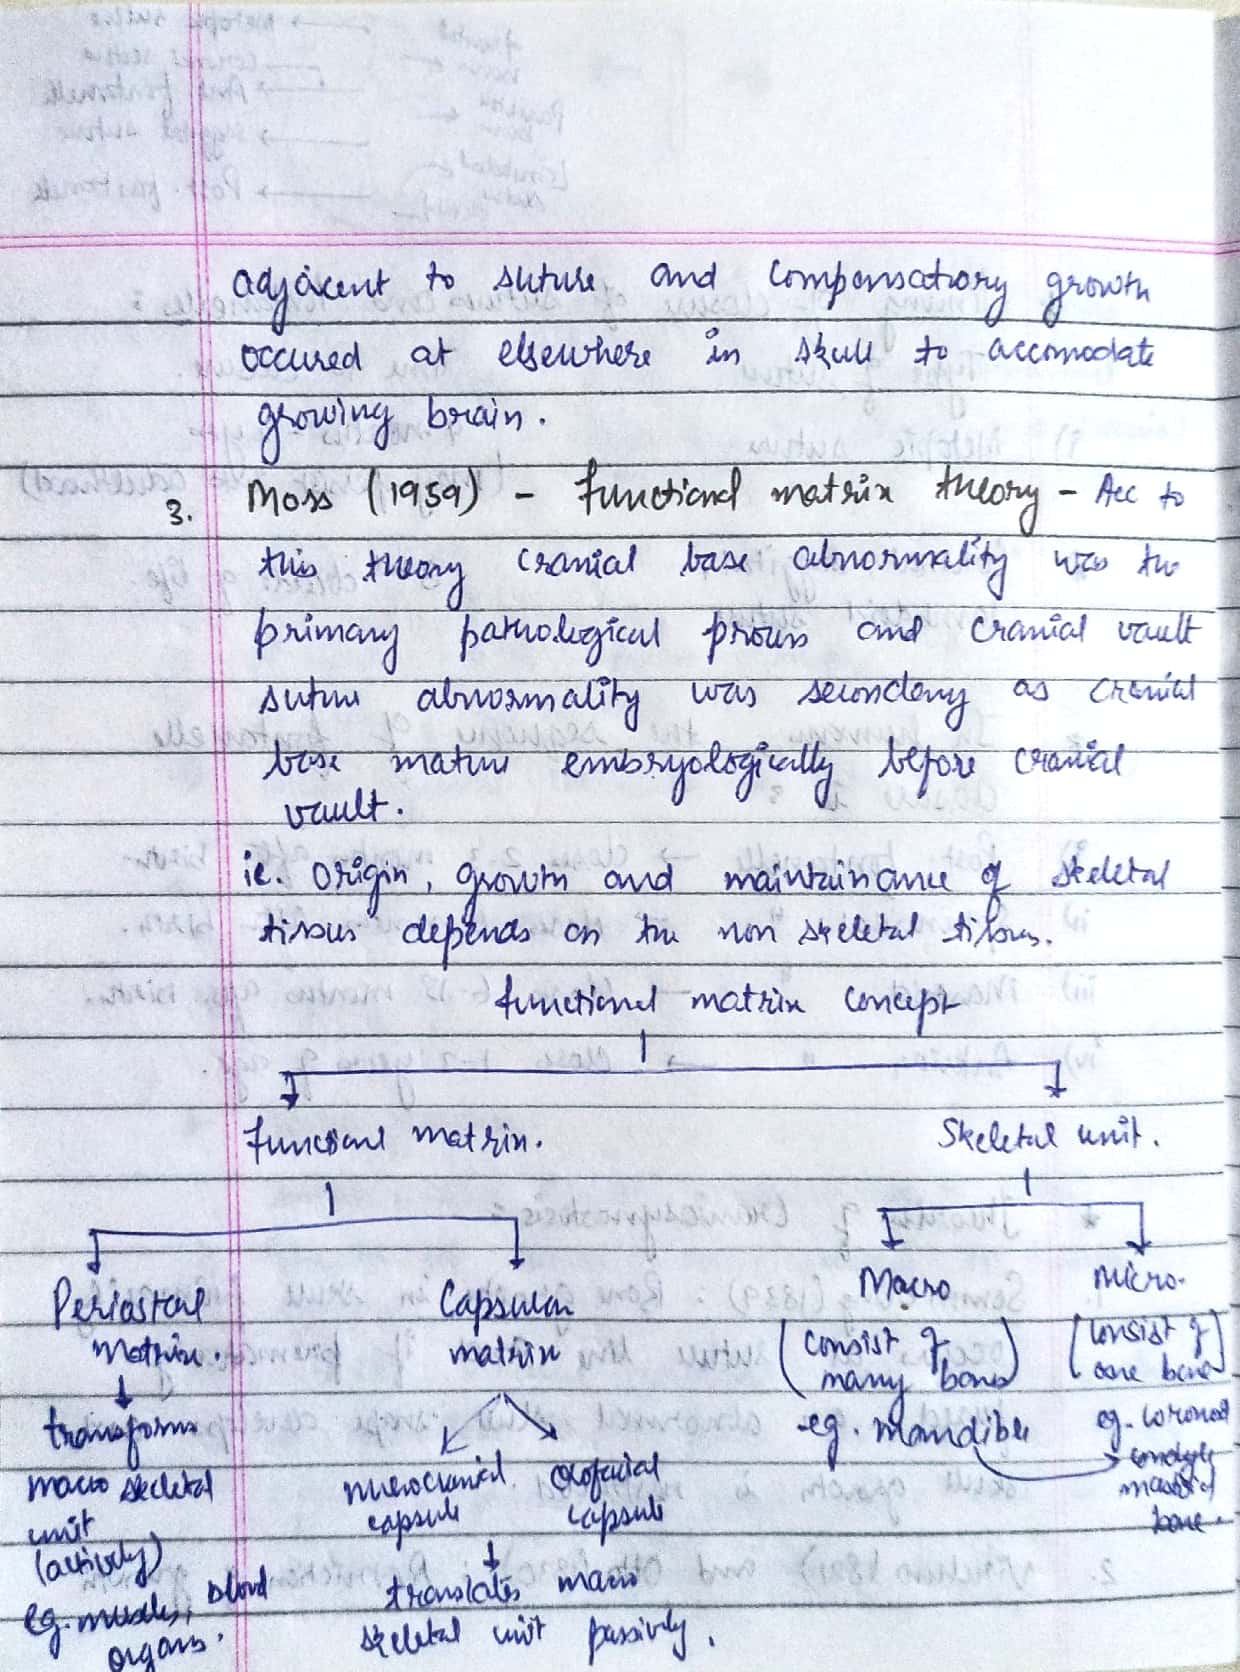 adjacent to suture and compensatiory growth
occured at elsewhere in skull to accomodate
growing brain.
3. Moss (1959) - functional matrix theory - Acc to
this theory cranial base abnormality was the
primary pathological process and cranial vault
suture abnormality was secondary as cranial
base mature embryologically before cranial
vault.
ie. origin, growth and maintainance of skeletal
tissues depends on the non skeletal tissues.
functional matrix concept
functional matrix. Skeletal unit.
Periosteal matrix.
Capsular matrix
Macro
(consist of many bones)
eg. mandible
Micro.
[consist of one bone]
eg. coronoid
condyle
bone.
transforms
macro skeletal
unit
(actively)
eg. muscles, blood
organs.
neurocranial capsule
orofacial capsule
translates macro
skeletal unit passively.